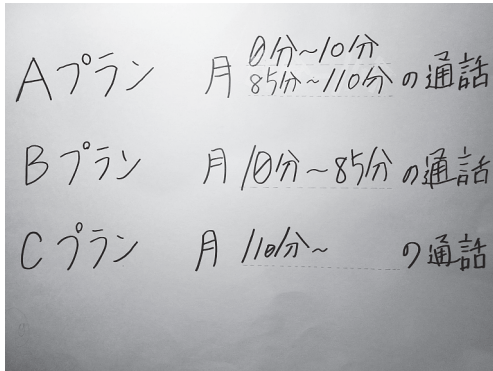 Aプラン 月 0分~10分
85分~110分 の通話
Bプラン 月 10分~85分 の通話
Cプラン 月 110分~ の通話